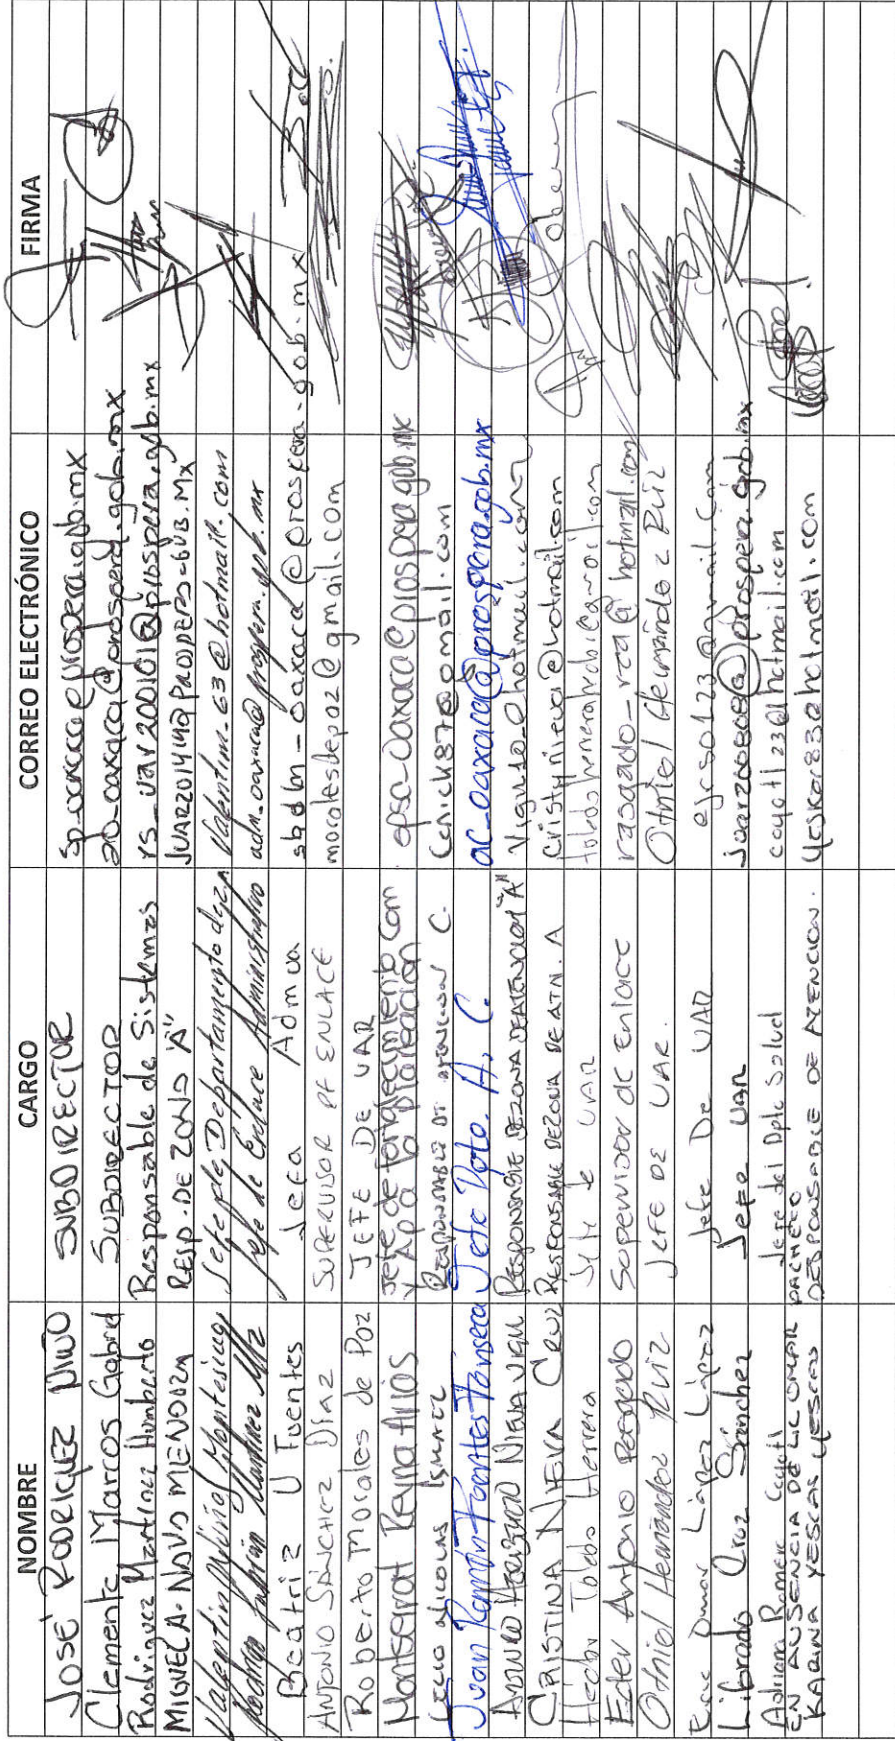 NOMBRE CARGO CORREO ELECTRÓNICO FIRMA
JOSÉ RODRIGUEZ NIÑO SUBDIRECTOR sp_oaxaca@prospera.gob.mx
Clemente Marcos Gabriel SUBDIRECTOR ao-oaxaca@prospera.gob.mx
Rodriguez Martinez Humberto Responsable de Sistemas rs_uar200101@prospera.gob.mx
MIGUEL A. NAVA MENDOZA RESP. DE ZONA "A" JUAR201414@PROSPERA.GOB.MX
Valentin Niño Montesinos Jefe de Departamento de Valentin_63@hotmail.com
Rodrigo Fabián Martínez Mtz Jefe de Enlace Administrativo adm_oaxaca@prospera.gob.mx
Beatriz U Fuentes Jefa Admva sbdm-oaxaca@prospera.gob.mx
ANTONIO SÁNCHEZ DÍAZ SUPERVISOR DE ENLACE moralesdepaz@gmail.com
Roberto Morales de Paz JEFE DE UAR
Montserrat Reyna Arios Jefe de fortalecimiento Com epsc-oaxaca@prospera.gob.mx
y Apo a la planeación
NICOLAS ISMAEL RESPONSABLE DE ATENCION C.
Juan Ramón Fuentes Fonseca Jefe Dpto. A. C. ac-oaxaca@prospera.gob.mx
ARTURO NIEVA RESPONSABLE DE ZONA DE ATENCION "A"
CRISTINA NIEVA CRUZ RESPONSABLE DE ZONA DE ATN. A cristynieva@hotmail.com
Héctor Toledo Herrera Jefe de UAR
Eder Antonio Rasgado Supervisor de Enlace rasgado_rea@hotmail.com
Othniel Hernández Ruiz JEFE DE UAR. Othniel Hernández Ruiz
Omar López López Jefe De UAR ejcso123@gmail.com
Librado Cruz Sánchez Jefe UAR juar200808@prospera.gob.mx
Adriana Romero Coyotl Jefe del Dpto Salud coyotl23@hotmail.com
EN AUSENCIA DE LIC OMAR PACHECO
KARINA YESCAS YESCAS RESPONSABLE DE ATENCION. yeskar83@hotmail.com